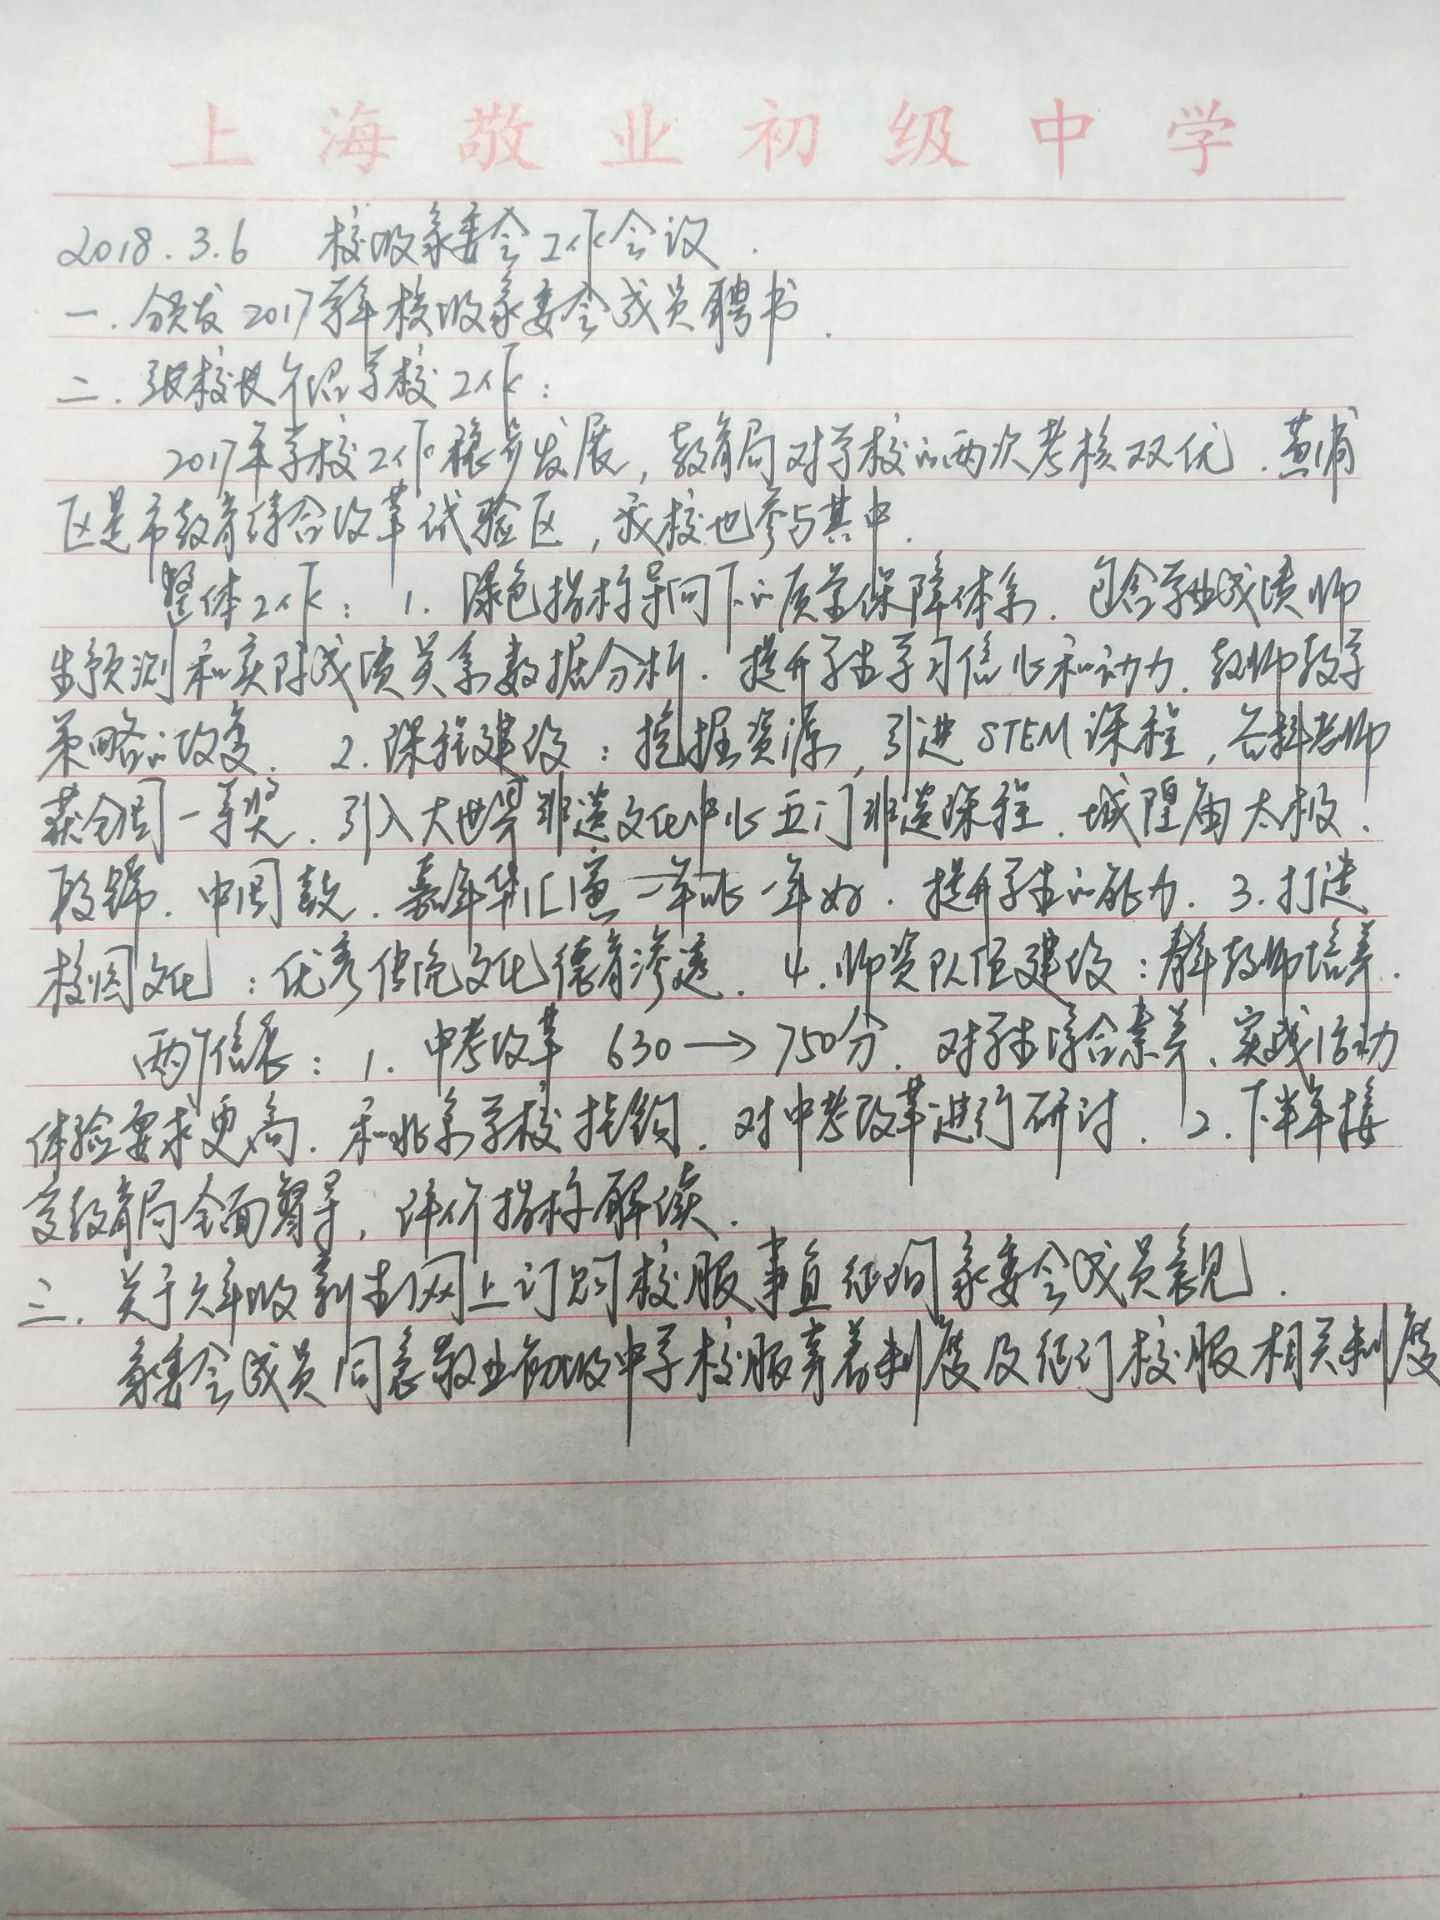 上海敬业初级中学
2018.3.6 校级家委会工作会议.
一.颁发2017学年校级家委会成员聘书.
二.张校长介绍学校工作:
2017年学校工作稳步发展,教育局对学校的两次考核双优.黄浦
区是市教育综合改革试验区,我校也参与其中.
整体工作:1.绿色指标导向下的质量保障体系.包含学业成绩师
生预测和实际成绩关系数据分析.提升学生学习信心和动力.教师教学
策略的改变. 2.课程建设:挖掘资源,引进STEM课程,各科老师
获全国一等奖.引入大世界非遗文化中心五门非遗课程.城隍庙太极.
中国鼓.嘉年华汇演一年比一年好.提升学生的能力.3.打造
校园文化:优秀传统文化德育渗透. 4.师资队伍建设:青年教师培养.
两个信息:1.中考改革 630→750分.对学生综合素养、实践活动
体验要求更高.和兆京学校挂钩.对中考改革进行研讨. 2.下半年接
受教育局全面督导,评价指标解读.
三.关于六年级新生网上订购校服事宜征询家委会成员意见.
家委会成员同意敬业初级中学校服穿着制度及征订校服相关制度